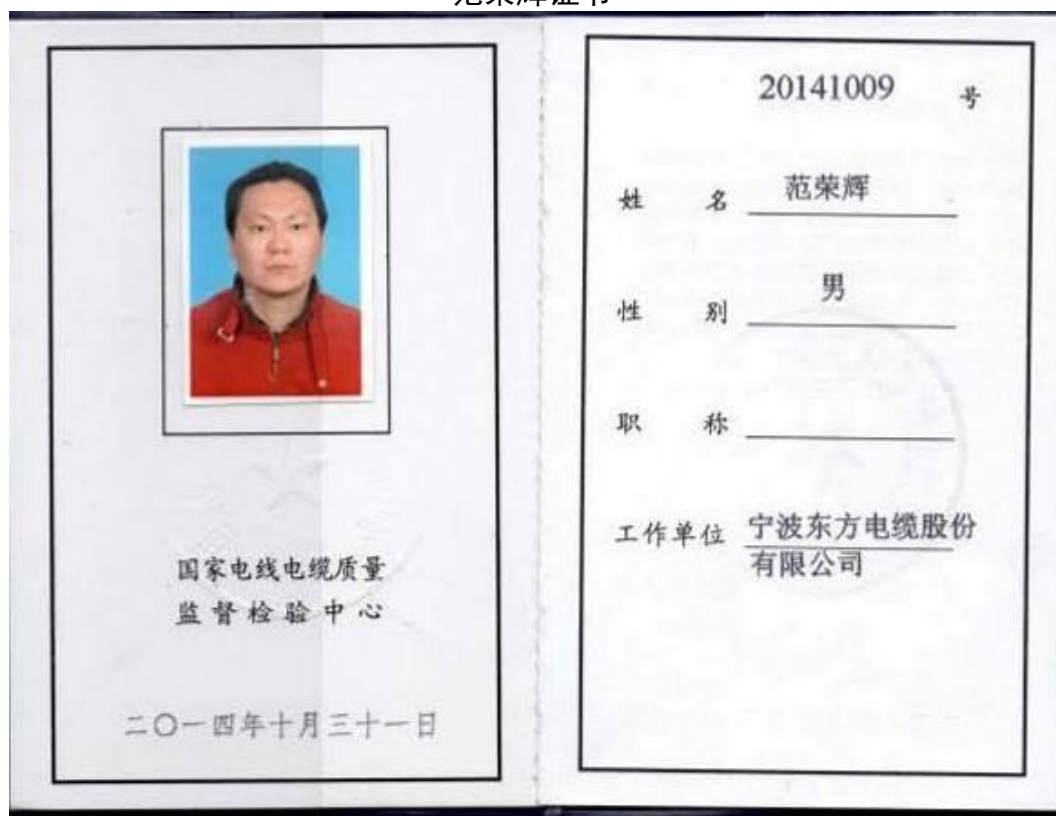 范荣辉证书
国家电线电缆质量
监督检验中心
二〇一四年十月三十一日
20141009 号
姓 名 范荣辉
性 别 男
职 称
工作单位 宁波东方电缆股份
有限公司